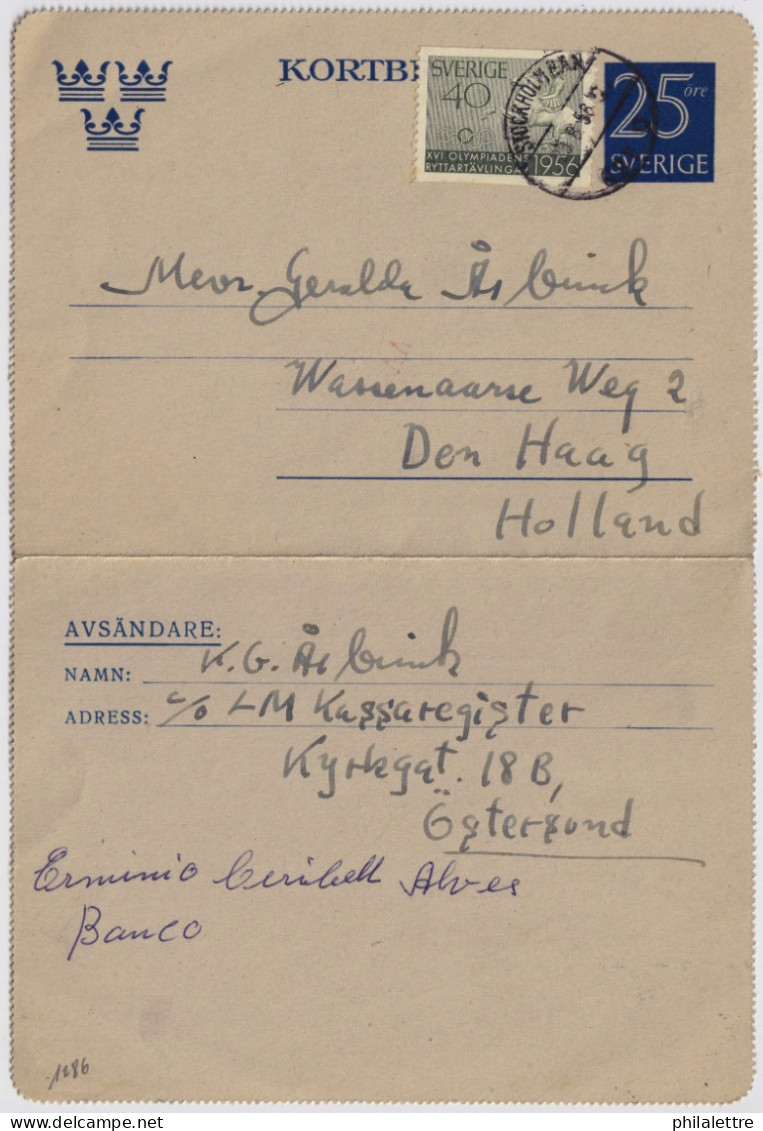 KORTBR
SVERIGE
40
XVI OLYMPIADENS
RYTTARTÄVLINGAR 1956
STOCKHOLM BAN
25 öre
SVERIGE
Mevr. Geralda Åsbrink
Wassenaarse Weg 2
Den Haag
Holland
AVSÄNDARE:
NAMN: K.G. Åsbrink
ADRESS: c/o LM Kassaregister
Kyrkgat. 18 B,
Östersund
Erminio Alves
Banco
1286
philalettre